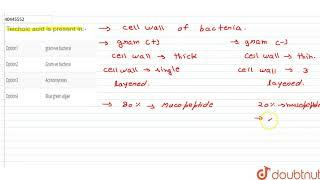 40445552
Teichoic acid is present in :-
Option1 gram+ve bacteria
Option2 Gram-ve bacteria
Option3 Actinomycetes
Option4 Blue green algae
→ cell wall of bacteria.
→ gram (+) → gram (-)
cell wall → thick cell wall → thin.
cell wall → single cell wall → 3
layered. layered.
→ 80% → Mucopeptide 20% → mucopeptide
→
doubtnut